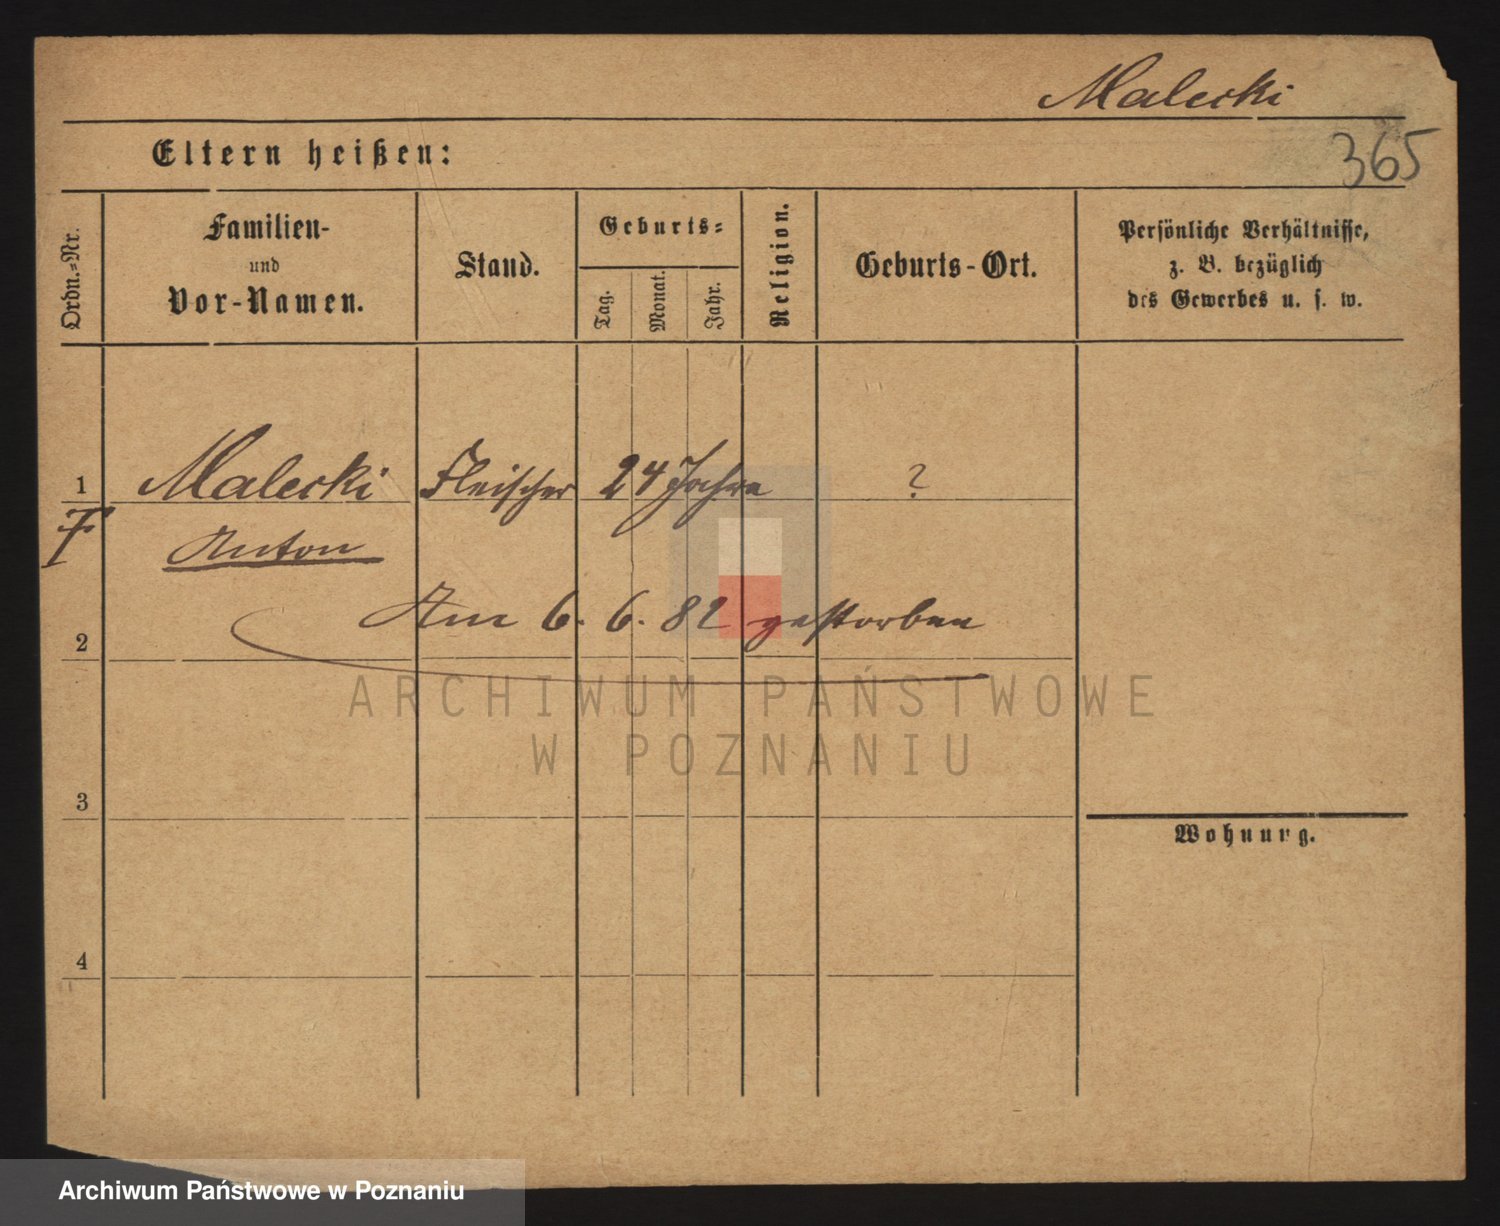 Malecki
365
Eltern heißen:
Ordn.=Nr.
Familien-
und
Vor-Namen.
Stand.
Geburts=
Tag.
Monat.
Jahr.
Religion.
Geburts-Ort.
Persönliche Verhältnisse,
z. B. bezüglich
des Gewerbes u. s. w.
1 Malecki Fleischer 24 Jahre ?
Anton
Am 6. 6. 82 gestorben
2
ARCHIWUM PAŃSTWOWE
W POZNANIU
3
Wohnung.
4
Archiwum Państwowe w Poznaniu